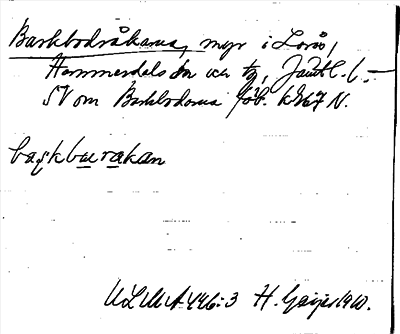 Barkbodråkarna, myr i Lorås,
Hammerdals sn och tg, Jämtl. l.
SV om Barkbodarna fäb.
baʂkburakan
ULMA 446:3 H. Geijer 1910.